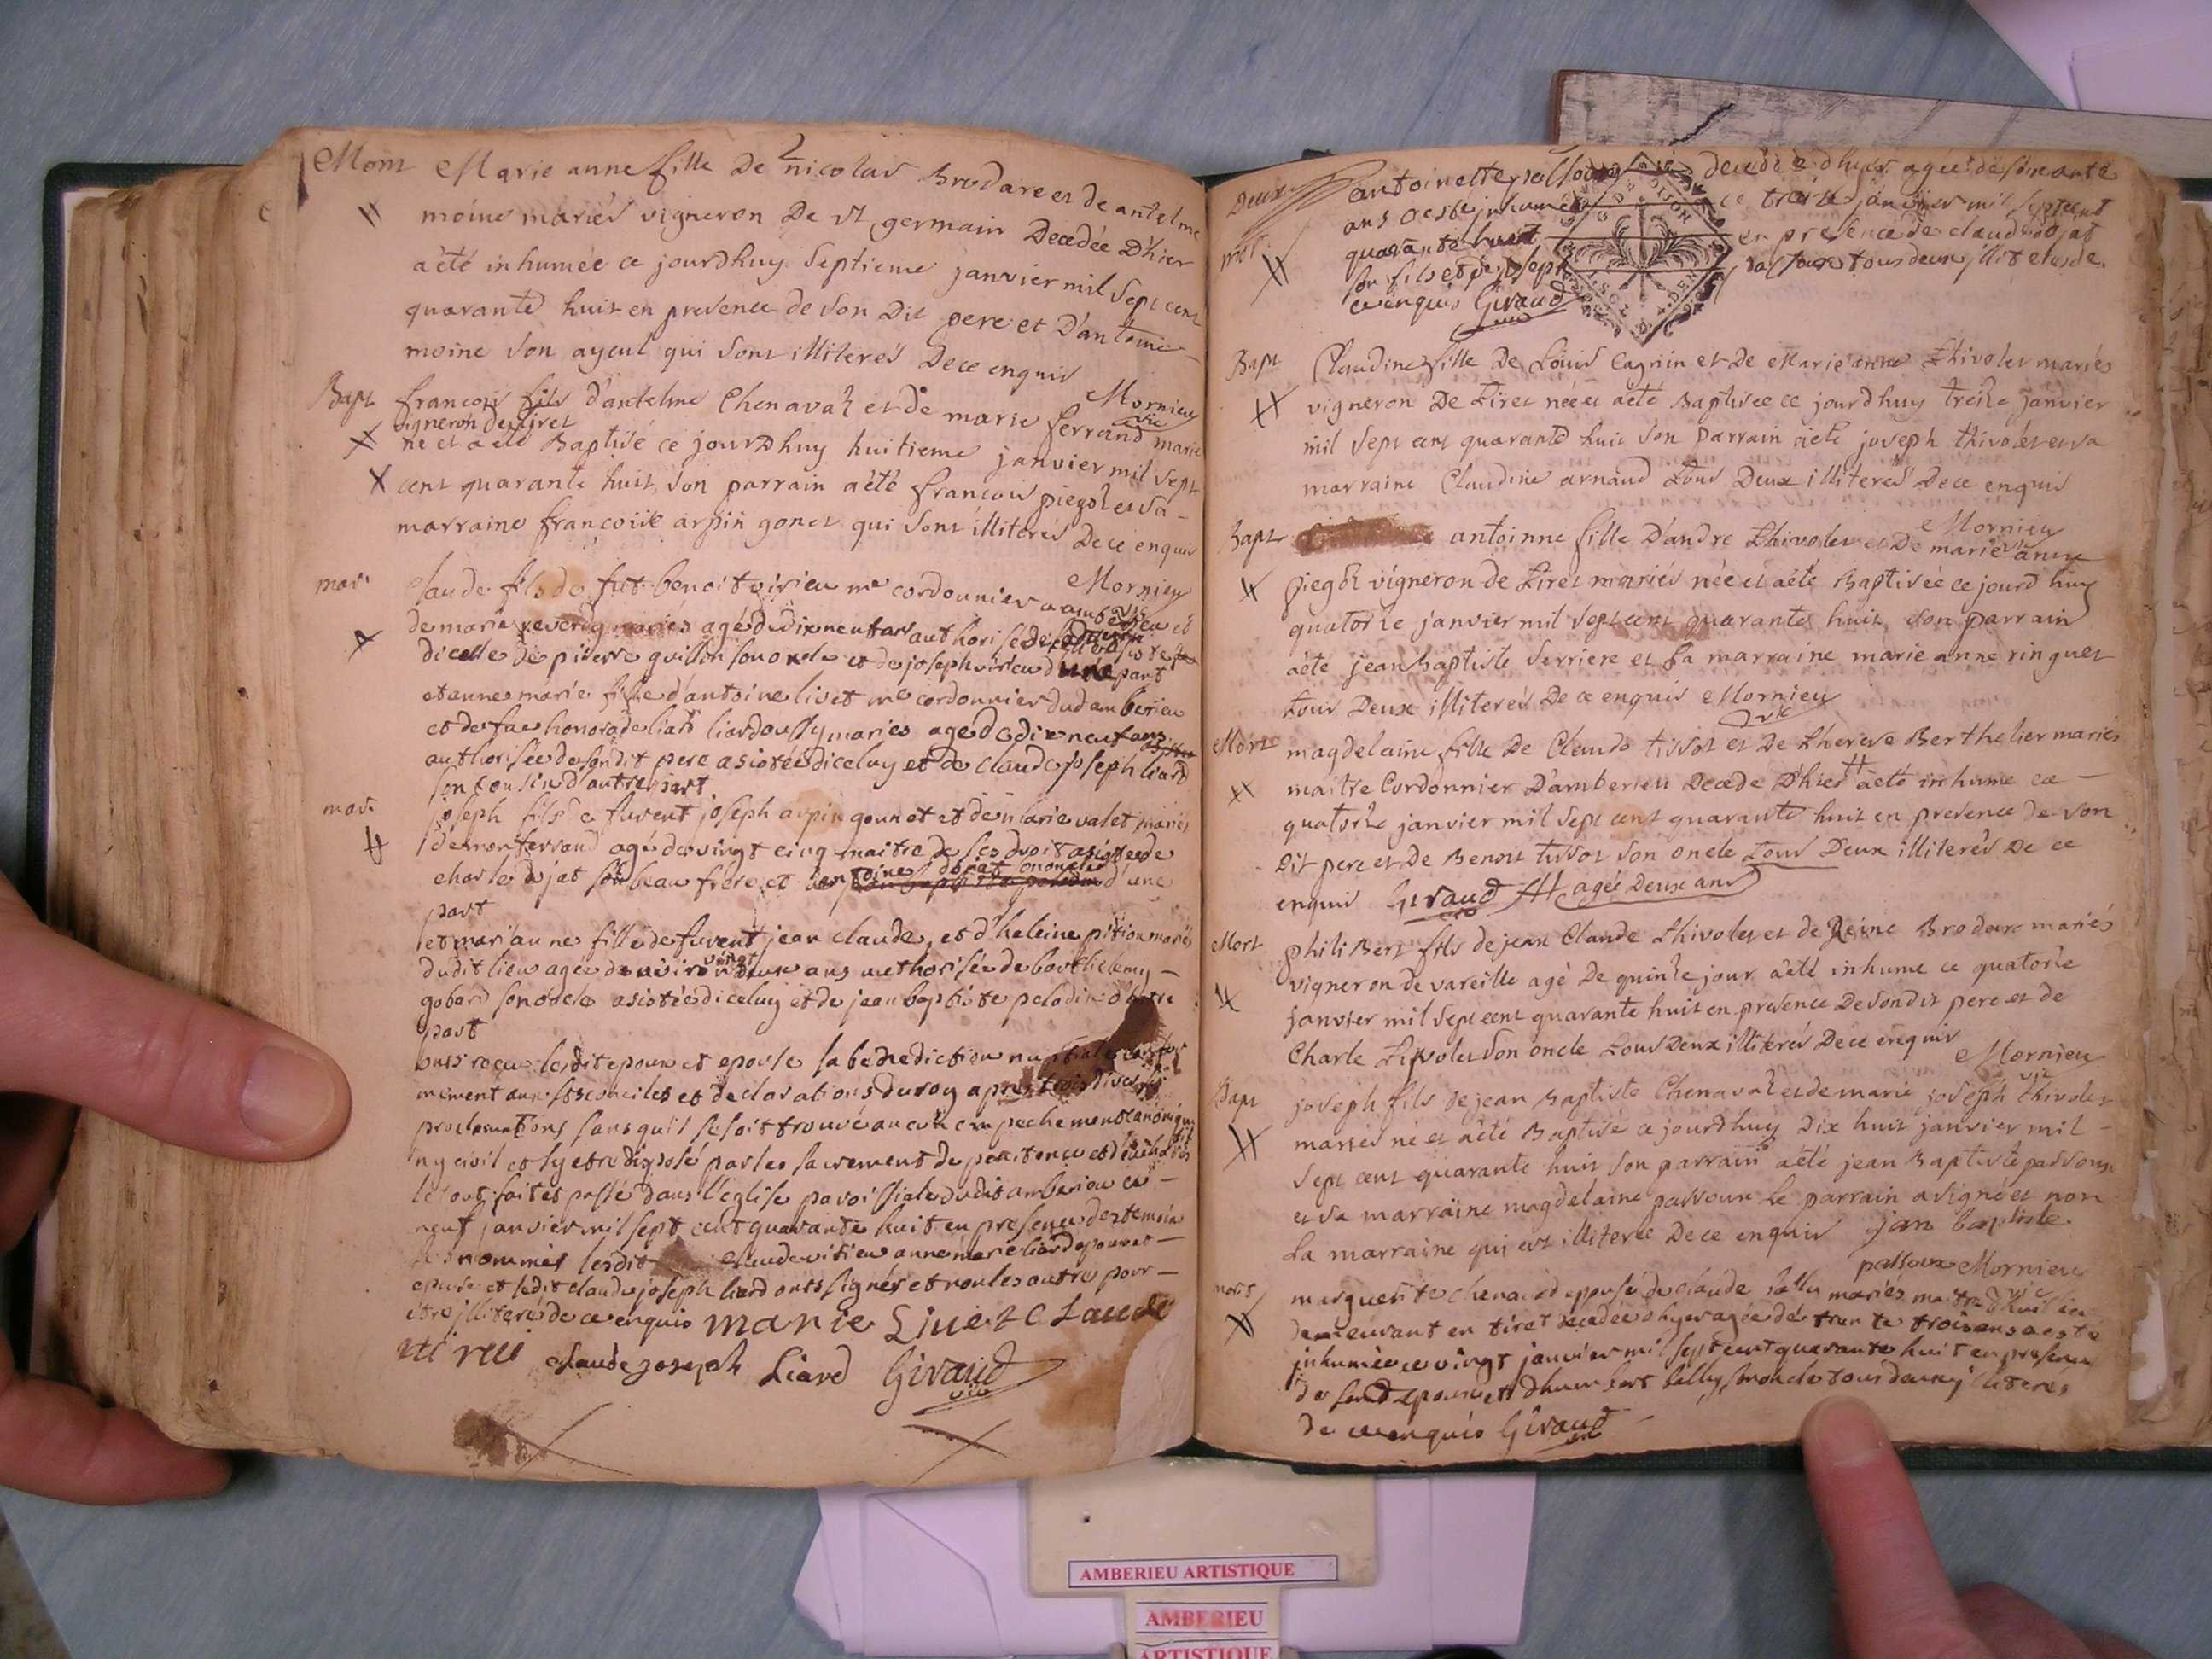 Mort Marie anne fille De nicolas Brodare et de antelme
moine mariés vigneron De st germain Decedée D'hier
a été inhumée ce jourdhuy Septieme janvier mil Sept cent
quarante huit en presence de son Dit pere et D'antoine
moine son ayeul qui sont illiterés De ce enquis
Mornieu
vic
Bapt francois fils d'antelme Chenavaz et de marie ferrand marie
vigneron de tiret
né et a été Baptisé ce jourdhuy huitieme janvier mil Sept
cent quarante huit, son parrain a été francois piegoz et sa
marraine francoise arpin gonet qui sont illiterés De ce enquis
Mornieu
vic
mar. Claude fils de fut benoit virieu me cordonnier a amberieu et
de marie mariés agé de dix neuf ans authorisé de
dicelle de pierre guillon son oncle et de joseph virieu d'une part
et anne marie fille d'antoine livet me cordonnier dud amberieu
et de fae honorade liard mariés agée de dix neuf ans
authorisée de sondit pere asistée diceluy et de claude joseph liard
son cousin d'autre part
mar. joseph fils de furent joseph arpin gounet et de marie valet mariés
de montferrand agé de vingt cinq maitre de ses droit asisté de
charle dujat son beau frere et antoine dujat son oncle d'une
part
et marianne fille de furent jean claude, et d'heleine pition mariés
dudit lieu agée de vingt deux ans authorisée de barthelemy
gobard son oncle asistée diceluy et de jean baptiste peladin d'autre
part
ont reçu lesdit epoux et epouse la benediction nuptiale
mement aux Sts conciles et declarations du roy apres trois diverses
proclamations sans quil se soit trouvé aucun empechement canonique
ny civil et sy etre disposé par les sacrement de penitence et
le tout fait et passé dans l'eglise paroissiale dudit amberieu ce
neuf janvier mil sept cent quarante huit en presence des temoin
nommés lesdit claude virieu anne marie liard epoux et
epouse et ledit claude joseph liard onts signés et non les autre pour
etre illiterés de ce enquis marie Livet Claude
claude joseph Liard Giraud
vic
Deux
mort antoinette decedée d'hyer agée de soixante
ans a esté inhumée ce treize janvier mil sept cent
quarante huit en presence de claude dujat
son fils et de joseph tous deux illiterés de
ce enquis Giraud
DIJON
Bapt Claudine fille De Louis Cagnin et De Marie anne thivolet mariés
vigneron De tiret née et a été Baptisée ce jourdhuy treize janvier
mil sept cent quarante huit son parrain a été joseph thivolet et sa
marraine Claudine arnaud tous Deux illiterés De ce enquis
Mornieu
vic
Bapt antoinne fille D'andre thivolet et De marie anne
piegoz vigneron de tiret mariés née et a été Baptisée ce jourd huy
quatorze janvier mil sept cent quarante huit, son parrain
a été jean Baptiste Serriere et sa marraine marie anne ringuet
tous Deux illiterés De ce enquis Mornieu
vic
Mort magdelaine fille De Claude tissot et De therese Berthelier mariés
maitre Cordonnier D'amberieu Decede D'hier a été inhume ce
quatorze janvier mil sept cent quarante huit en presence de son
Dit pere et De Benoit tissot son oncle tous Deux illiterés De ce
enquis Giraud agée Deux ans
vic
Mort philiBert fils de jean Claude thivolet et de Reine Brodare mariés
vigneron de vareille agé De quinze jour a été inhume ce quatorze
janvier mil sept cent quarante huit en presence De son dit pere et de
Charle tivolet son oncle tous Deux illiterés De ce enquis
Mornieu
vic
Bapt joseph fils de jean Baptiste Chenavaz et de marie joseph thivolet
mariés né et a été Baptisé ce jourdhuy Dix huit janvier mil
sept cent quarante huit son parrain a été jean Baptiste passoux
et sa marraine magdelaine passoux le parrain a signé et non
la marraine qui est illiterée De ce enquis jan baptiste
passoux Mornieu
vic
mort marguerite chenavaz eppouse de claude Sallu mariés
demeurant en tiret decedée d'hyer agée de trente trois ans a esté
inhumée ce vingt janvier mil sept cent quarante huit en presence
de son d epoux et d'humbert Sallu son oncle tous deux illiterés
de ce enquis Giraud
vic
AMBERIEU ARTISTIQUE
AMBERIEU
ARTISTIQUE